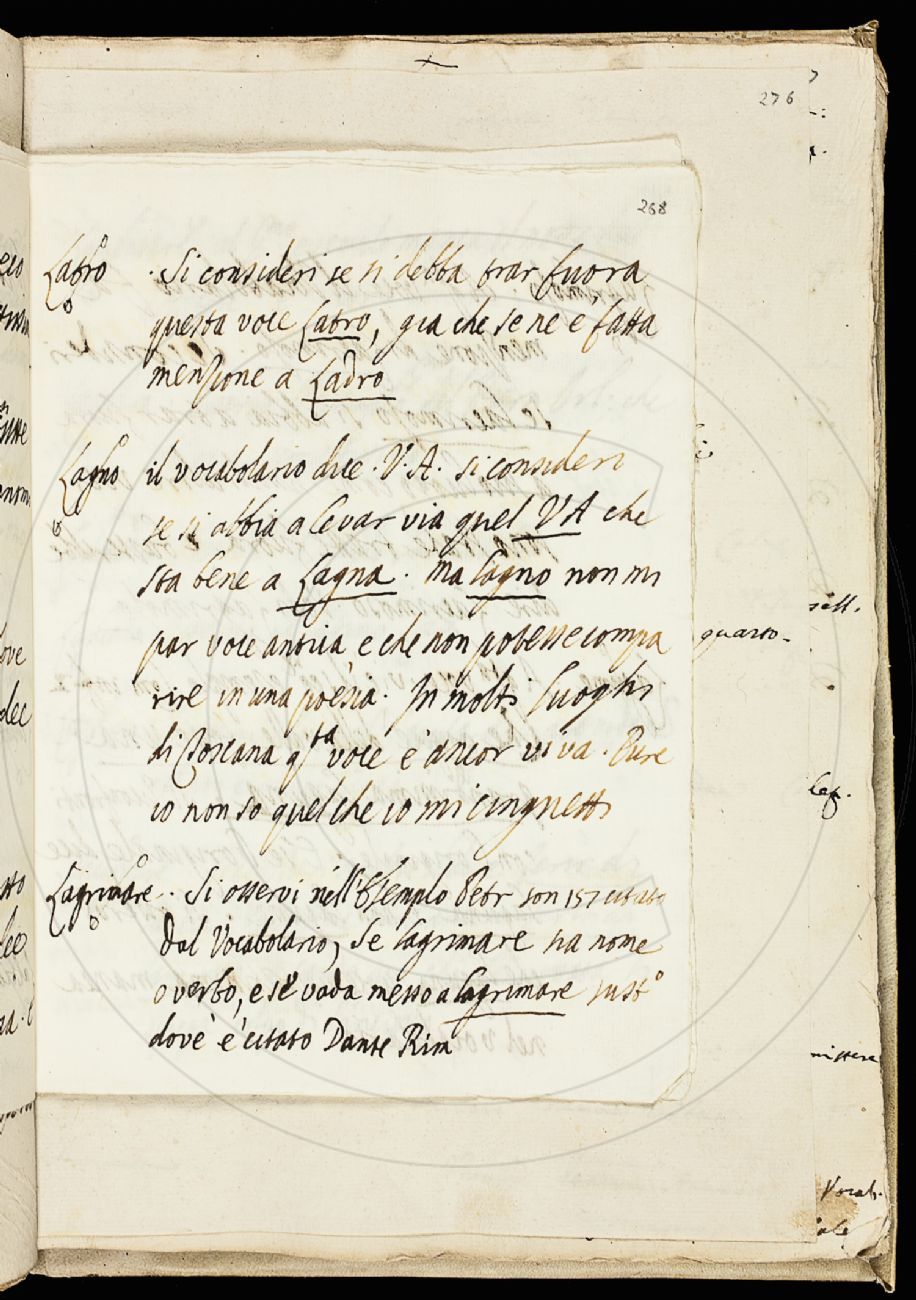 276
268
Latro · Si consideri se si debba trar fuora
questa voce Latro, gia che se ne è fatta
menzione a Ladro
Lagno il vocabolario dice · V · A · si consideri
se si abbia a levar via quel VA che
sta bene a Lagna · ma lagno non mi
par voce antica e che non potesse compa
rire in una poesia · In molti luoghi
di Toscana q.sta voce è ancor viva · Pure
io non so quel che io mi cinguetti
Lagrimare · Si osservi nell'Esemplo Petr son 157 citato
dal Vocabolario, se lagrimare sia nome
o verbo, e se vada messo a lagrimare sust.o
dove è citato Dante Rim
quarto
Vocab.